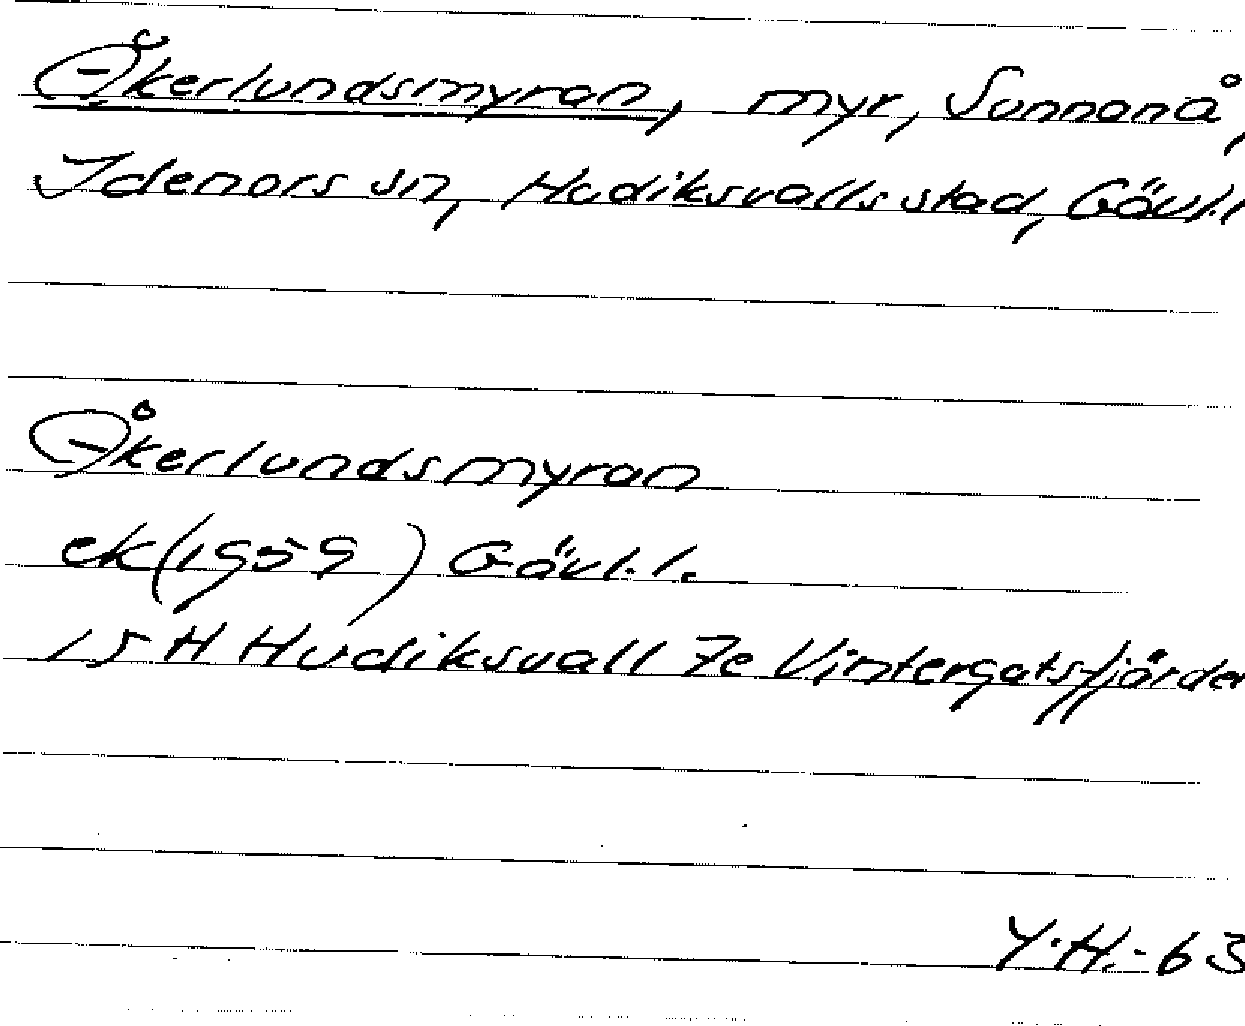 Åkerlundsmyran, myr, Sunnanå,
Idenors sn, Hudiksvalls stad, Gävl.l
Åkerlundsmyran
ek(1959) Gävl.l.
15 H Hudiksvall 7e Vintergatsfjärden
Y.H.-63